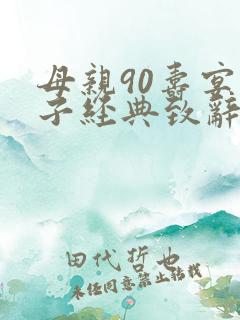 母親90壽宴
子經典致辭
田代哲也
未经同意禁止转载